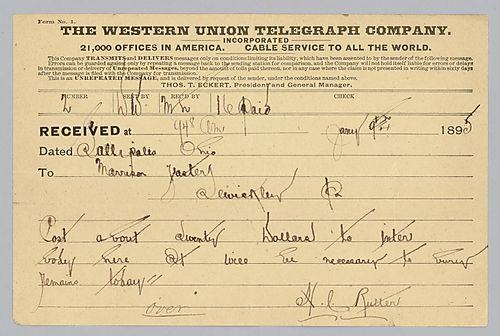 Form No. 1.
THE WESTERN UNION TELEGRAPH COMPANY.
INCORPORATED
21,000 OFFICES IN AMERICA. CABLE SERVICE TO ALL THE WORLD.
This Company TRANSMITS and DELIVERS messages only on conditions limiting its liability, which have been assented to by the sender of the following message.
Errors can be guarded against only by repeating a message back to the sending station for comparison, and the Company will not hold itself liable for errors or delays
in transmission or delivery of Unrepeated Messages, beyond the amount of tolls paid thereon, nor in any case where the claim is not presented in writing within sixty days
after the message is filed with the Company for transmission.
This is an UNREPEATED MESSAGE, and is delivered by request of the sender, under the conditions named above.
THOS. T. ECKERT, President and General Manager.
NUMBER SENT BY REC'D BY CHECK
2 Paid
RECEIVED at 948 am Jany 1895
Dated Gallipolis Ohio
To Harrison
Cost a bout twenty Dollars to inter
body here it will be necessary to bury
remains today"
H. C.
over